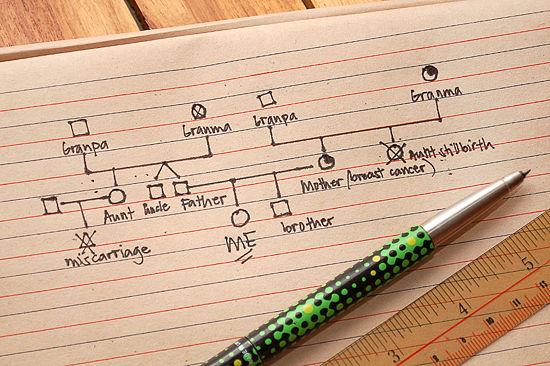 Granpa
Granma
Granpa
Granma
Aunt
Uncle
Father
Mother (breast cancer)
Aunt stillbirth
miscarriage
ME
brother
3
4
5